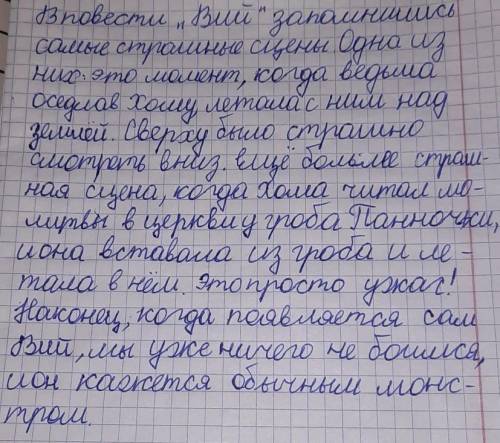 В повести „Вий" запомнились
самые страшные сцены. Одна из
них- это момент, когда ведьма
оседлав Хому летала с ним над
землёй. Сверху было страшно
смотреть вниз. ещё больлее страш-
ная сцена, когда Хома читал мо-
литвы в церкви у гроба Панночки,
и она вставала из гроба и ле-
тала в нём. это просто ужас!
Наконец, когда появляется сам
Вий, мы уже ничего не боимся,
и он кажется обычным монс-
тром.